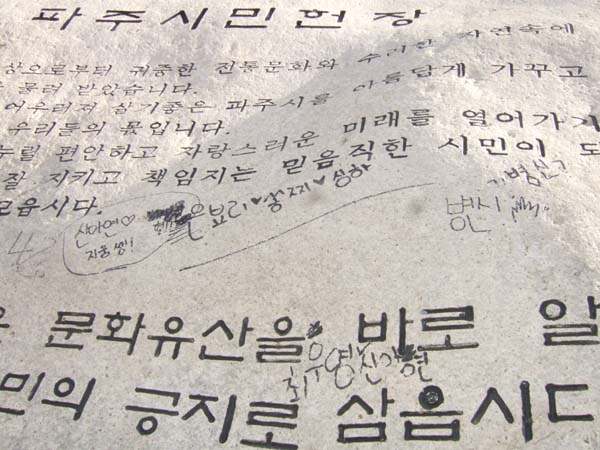 파주시민헌장
상으로부터 귀중한 전통문화와 수려한 자연속에
물려 받았습니다.
어우러져 살기좋은 파주시를 아름답게 가꾸고
우리들의 몫입니다.
누릴 편안하고 자랑스러운 미래를 열어가기
잘 지키고 책임지는 믿음직한 시민이 되
모읍시다.
신아연♡
지웅쌩!
은보리♥쏭찌♥싱하
병신
4
문화유산을 바로 알
최우영 신가현
민의 긍지로 삼읍시다